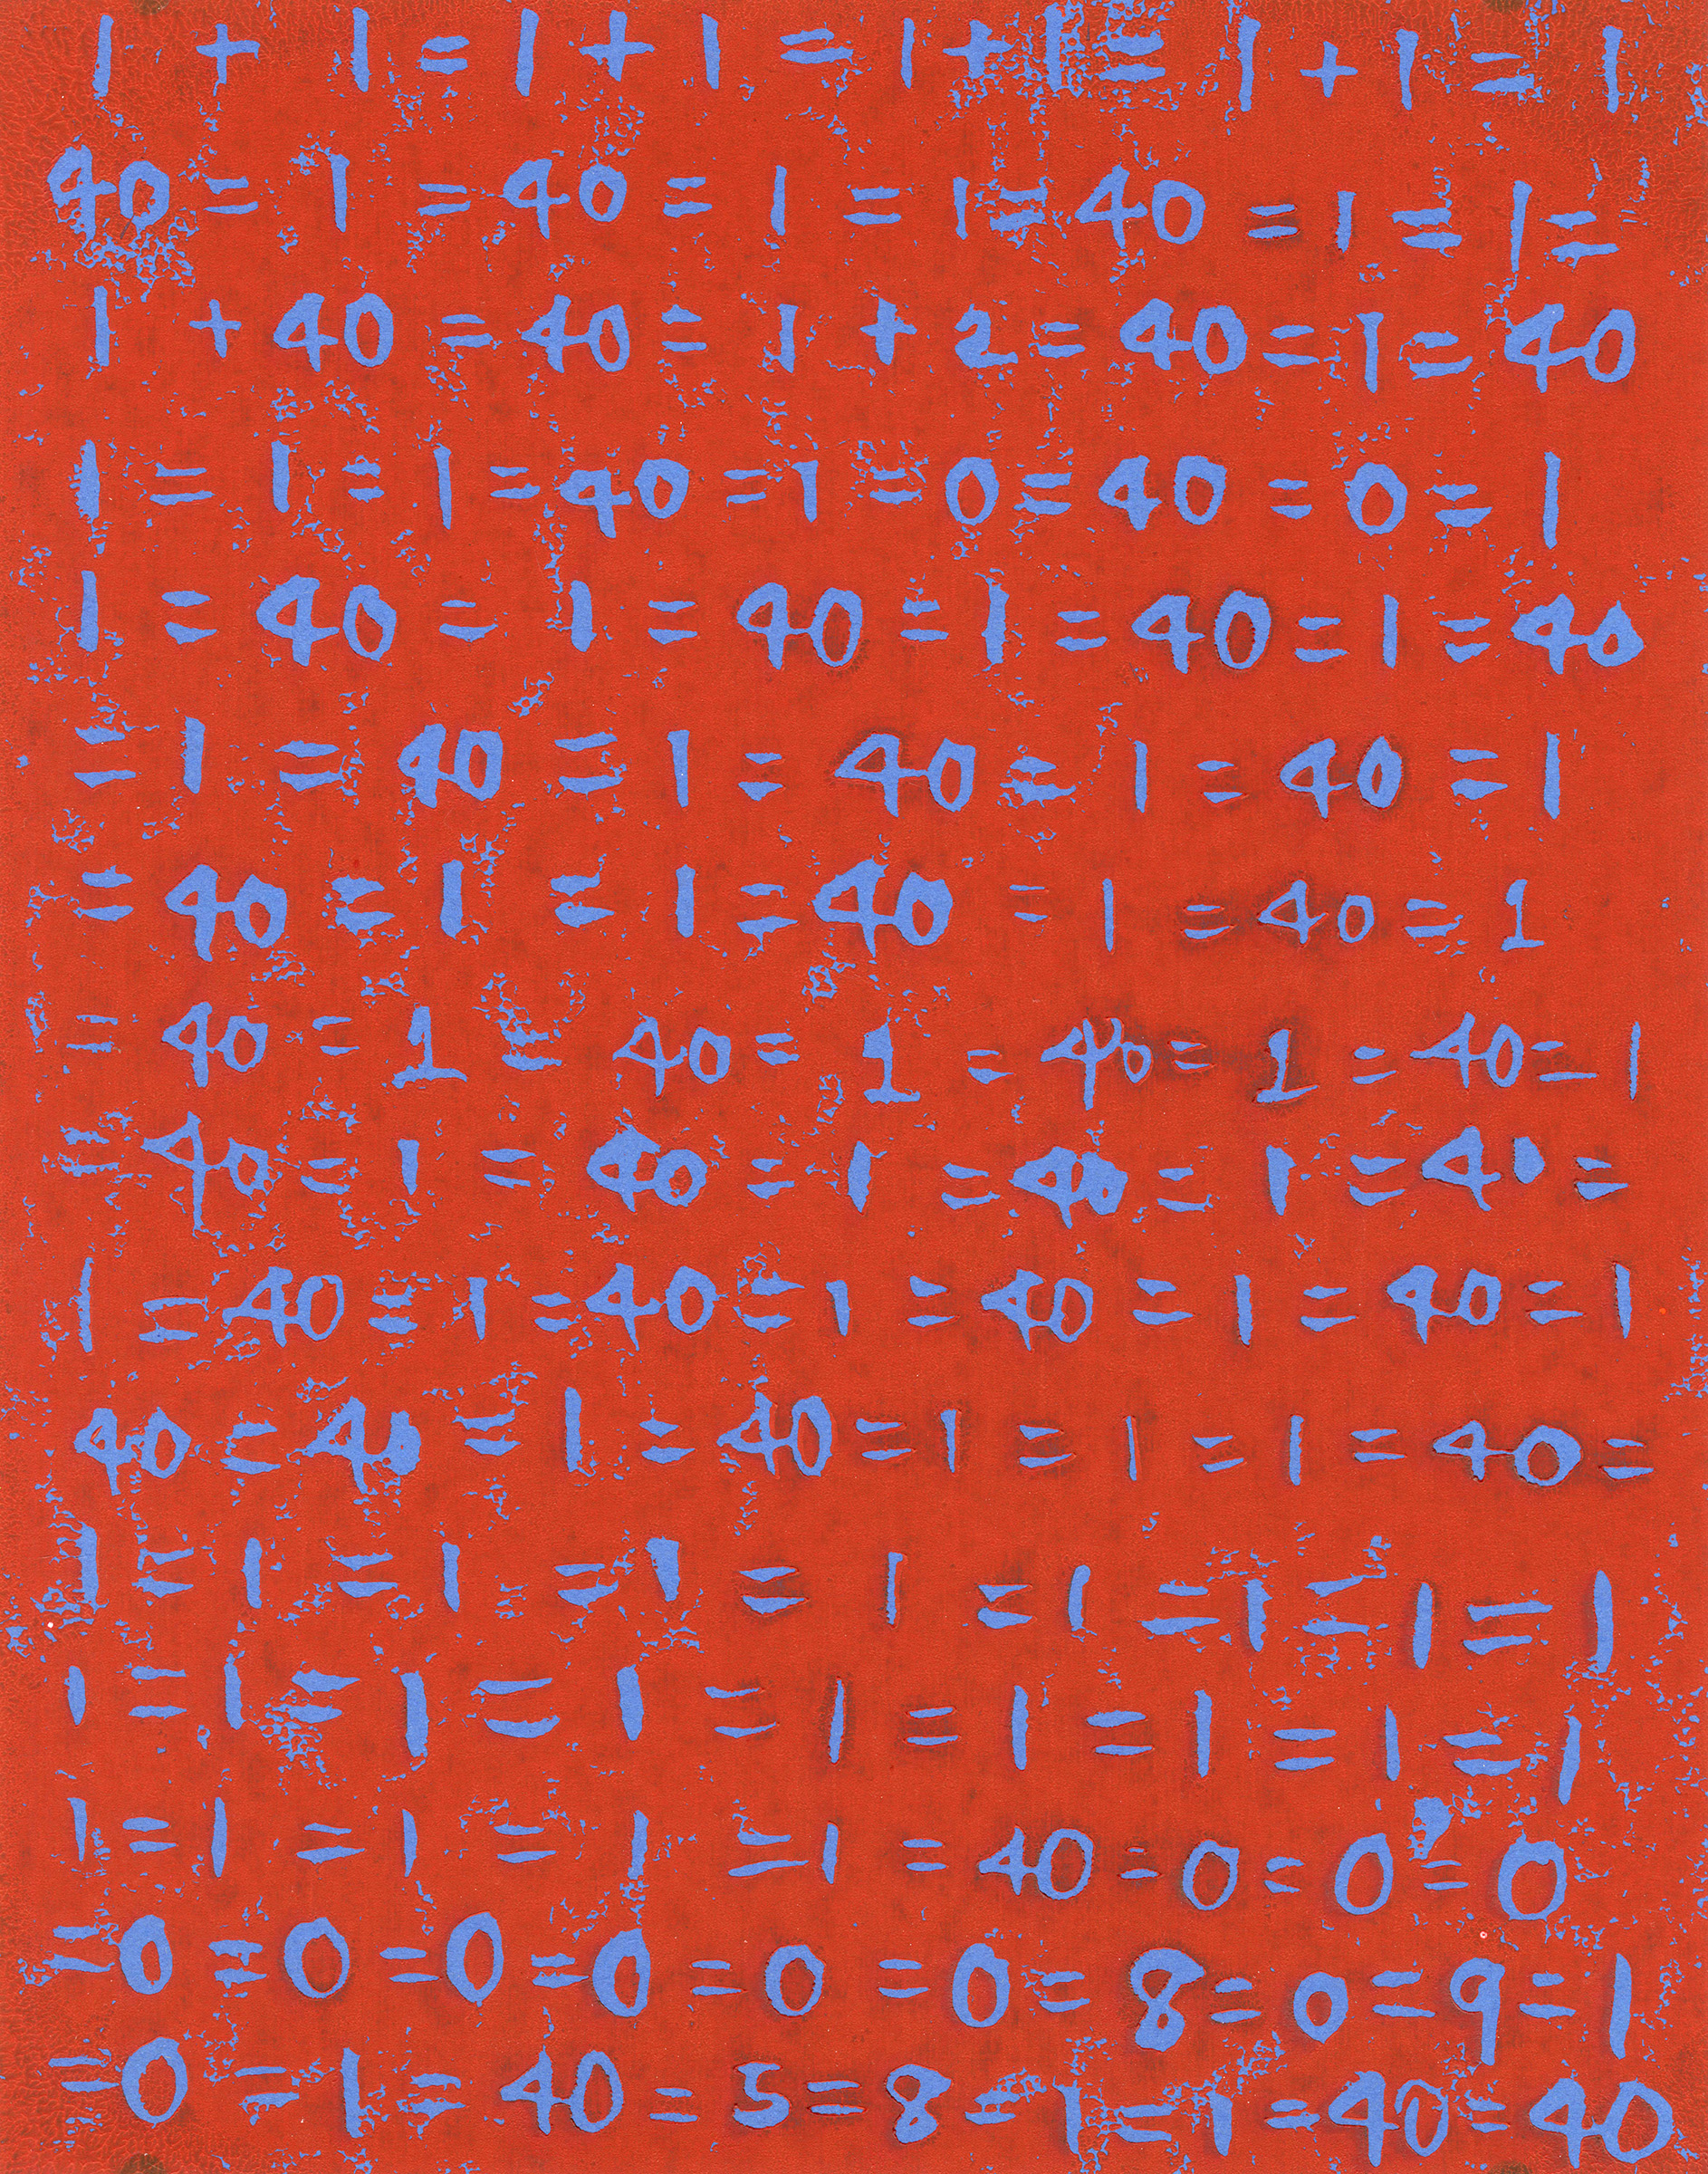 1 + 1 = 1 + 1 = 1 + 1 = 1 + 1 = 1
40 = 1 = 40 = 1 = 1 = 40 = 1 = 1 =
1 + 40 = 40 = 1 + 2 = 40 = 1 = 40
1 = 1 = 1 = 40 = 1 = 0 = 40 = 0 = 1
1 = 40 = 1 = 40 = 1 = 40 = 1 = 40
= 1 = 40 = 1 = 40 = 1 = 40 = 1
= 40 = 1 = 1 = 40 = 1 = 40 = 1
= 40 = 1 = 40 = 1 = 40 = 1 = 40 = 1
= 40 = 1 = 40 = 1 = 40 = 1 = 40 =
1 = 40 = 1 = 40 = 1 = 40 = 1 = 40 = 1
40 = 40 = 1 = 40 = 1 = 1 = 1 = 40 =
1 = 1 = 1 = 1 = 1 = 1 = 1 = 1 = 1
1 = 1 = 1 = 1 = 1 = 1 = 1 = 1 = 1
1 = 1 = 1 = 1 = 1 = 40 = 0 = 0 = 0
= 0 = 0 = 0 = 0 = 0 = 0 = 8 = 0 = 9 = 1
= 0 = 1 = 40 = 5 = 8 = 1 = 1 = 40 = 40